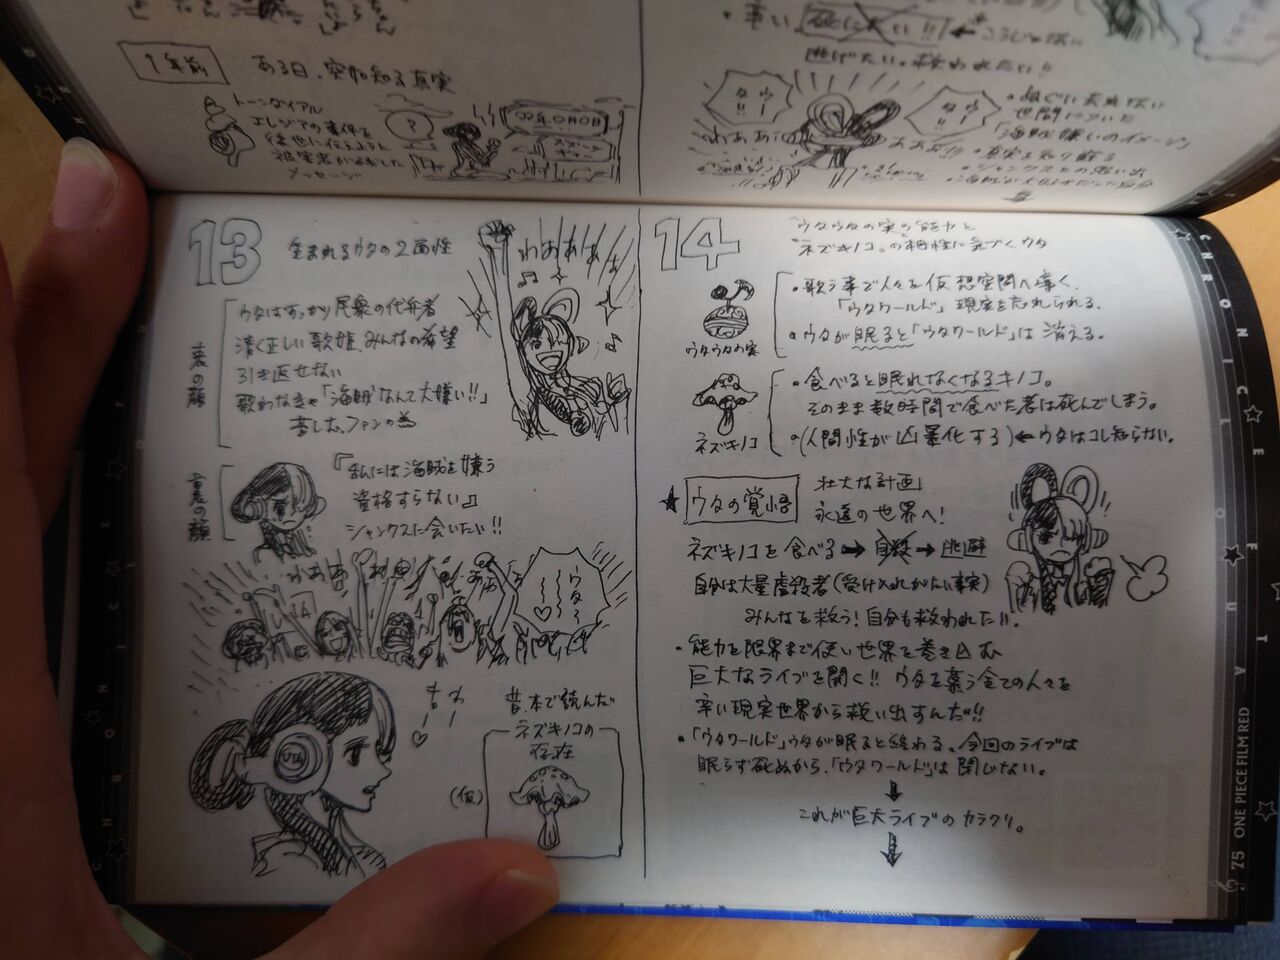 1年前
ある日、突如知る真実
トーンダイアル
エレジアの事件を
後世に伝えようと
被害者が残した
メッセージ
?
・辛い 死にたい!!
逃げたい。救われたい!!
ウター!!
ウター!!
わあぁぁ
世間についた
「海賊嫌いのイメージ」
・真実を知り蘇る
・シャンクスとの思い出
13
生まれるウタの2面性
わあああぁ
表の顔
ウタはすっかり民衆の代弁者
清く正しい歌姫、みんなの希望
引き返せない
歌わなきゃ「海賊なんて大嫌い!!」
苦しむファンの為
裏の顔
『私には海賊を嫌う
資格すらない』
シャンクスに会いたい!!
わああ
ウタ〜〜♡
昔、本で読んだ
ネズキノコの
存在
(仮)
14
ウタウタの実の能力と
"ネズキノコ"の相性に気づくウタ
ウタウタの実
・歌う事で人々を仮想空間へ導く。
「ウタワールド」現実を忘れられる。
・ウタが眠ると「ウタワールド」は消える。
ネズキノコ
・食べると眠れなくなるキノコ。
そのまま数時間で食べた者は死んでしまう。
・(人間性が凶暴化する)←ウタはコレ知らない。
★ ウタの覚悟
壮大な計画
永遠の世界へ!
ネズキノコを食べる→自殺→逃避
自分は大量虐殺者(受け入れがたい事実)
みんなを救う!自分も救われたい!!
・能力を限界まで使い世界を巻き込む
巨大なライブを開く!! ウタを慕う全ての人々を
辛い現実世界から救い出すんだ!!
・「ウタワールド」ウタが眠ると終わる。今回のライブは
眠らず死ぬから、「ウタワールド」は閉じない。
↓
これが巨大ライブのカラクリ。
↓
75 ONE PIECE FILM RED